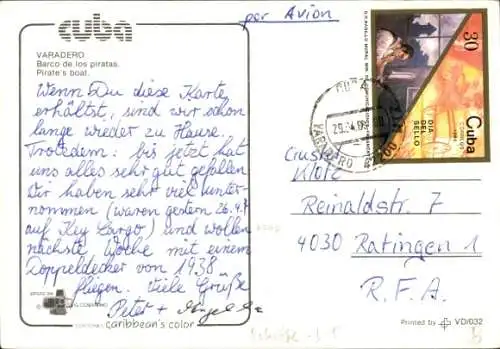 cuba
VARADERO
Barco de los piratas.
Pirate's boat.
Wenn Du diese Karte
erhältst, sind wir schon
lange wieder zu Hause.
Trotzdem: bis jetzt hat
uns alles sehr gut gefallen
Wir haben sehr viel unter-
nommen (waren gestern 26.4.
auf Key Largo) und wollen
nächste Woche mit einem
Doppeldecker von 1938
fliegen. Viele Grüße
Peter +
caribbean's color
par Avion
30
Cuba
DIA
DEL
SELLO
VARADERO
Klotz
Reinaldstr. 7
4030 Ratingen 1
R.F.A.
Printed by VD/032